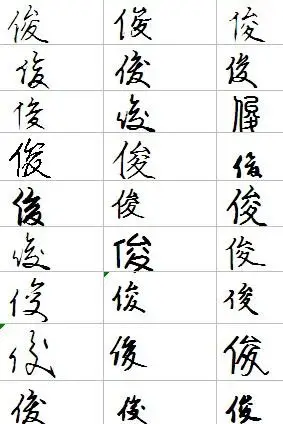 俊 俊 俊
俊 俊 俊
俊 俊 俊
俊 俊 俊
俊 俊 俊
俊 俊 俊
俊 俊 俊
俊 俊 俊
俊 俊 俊